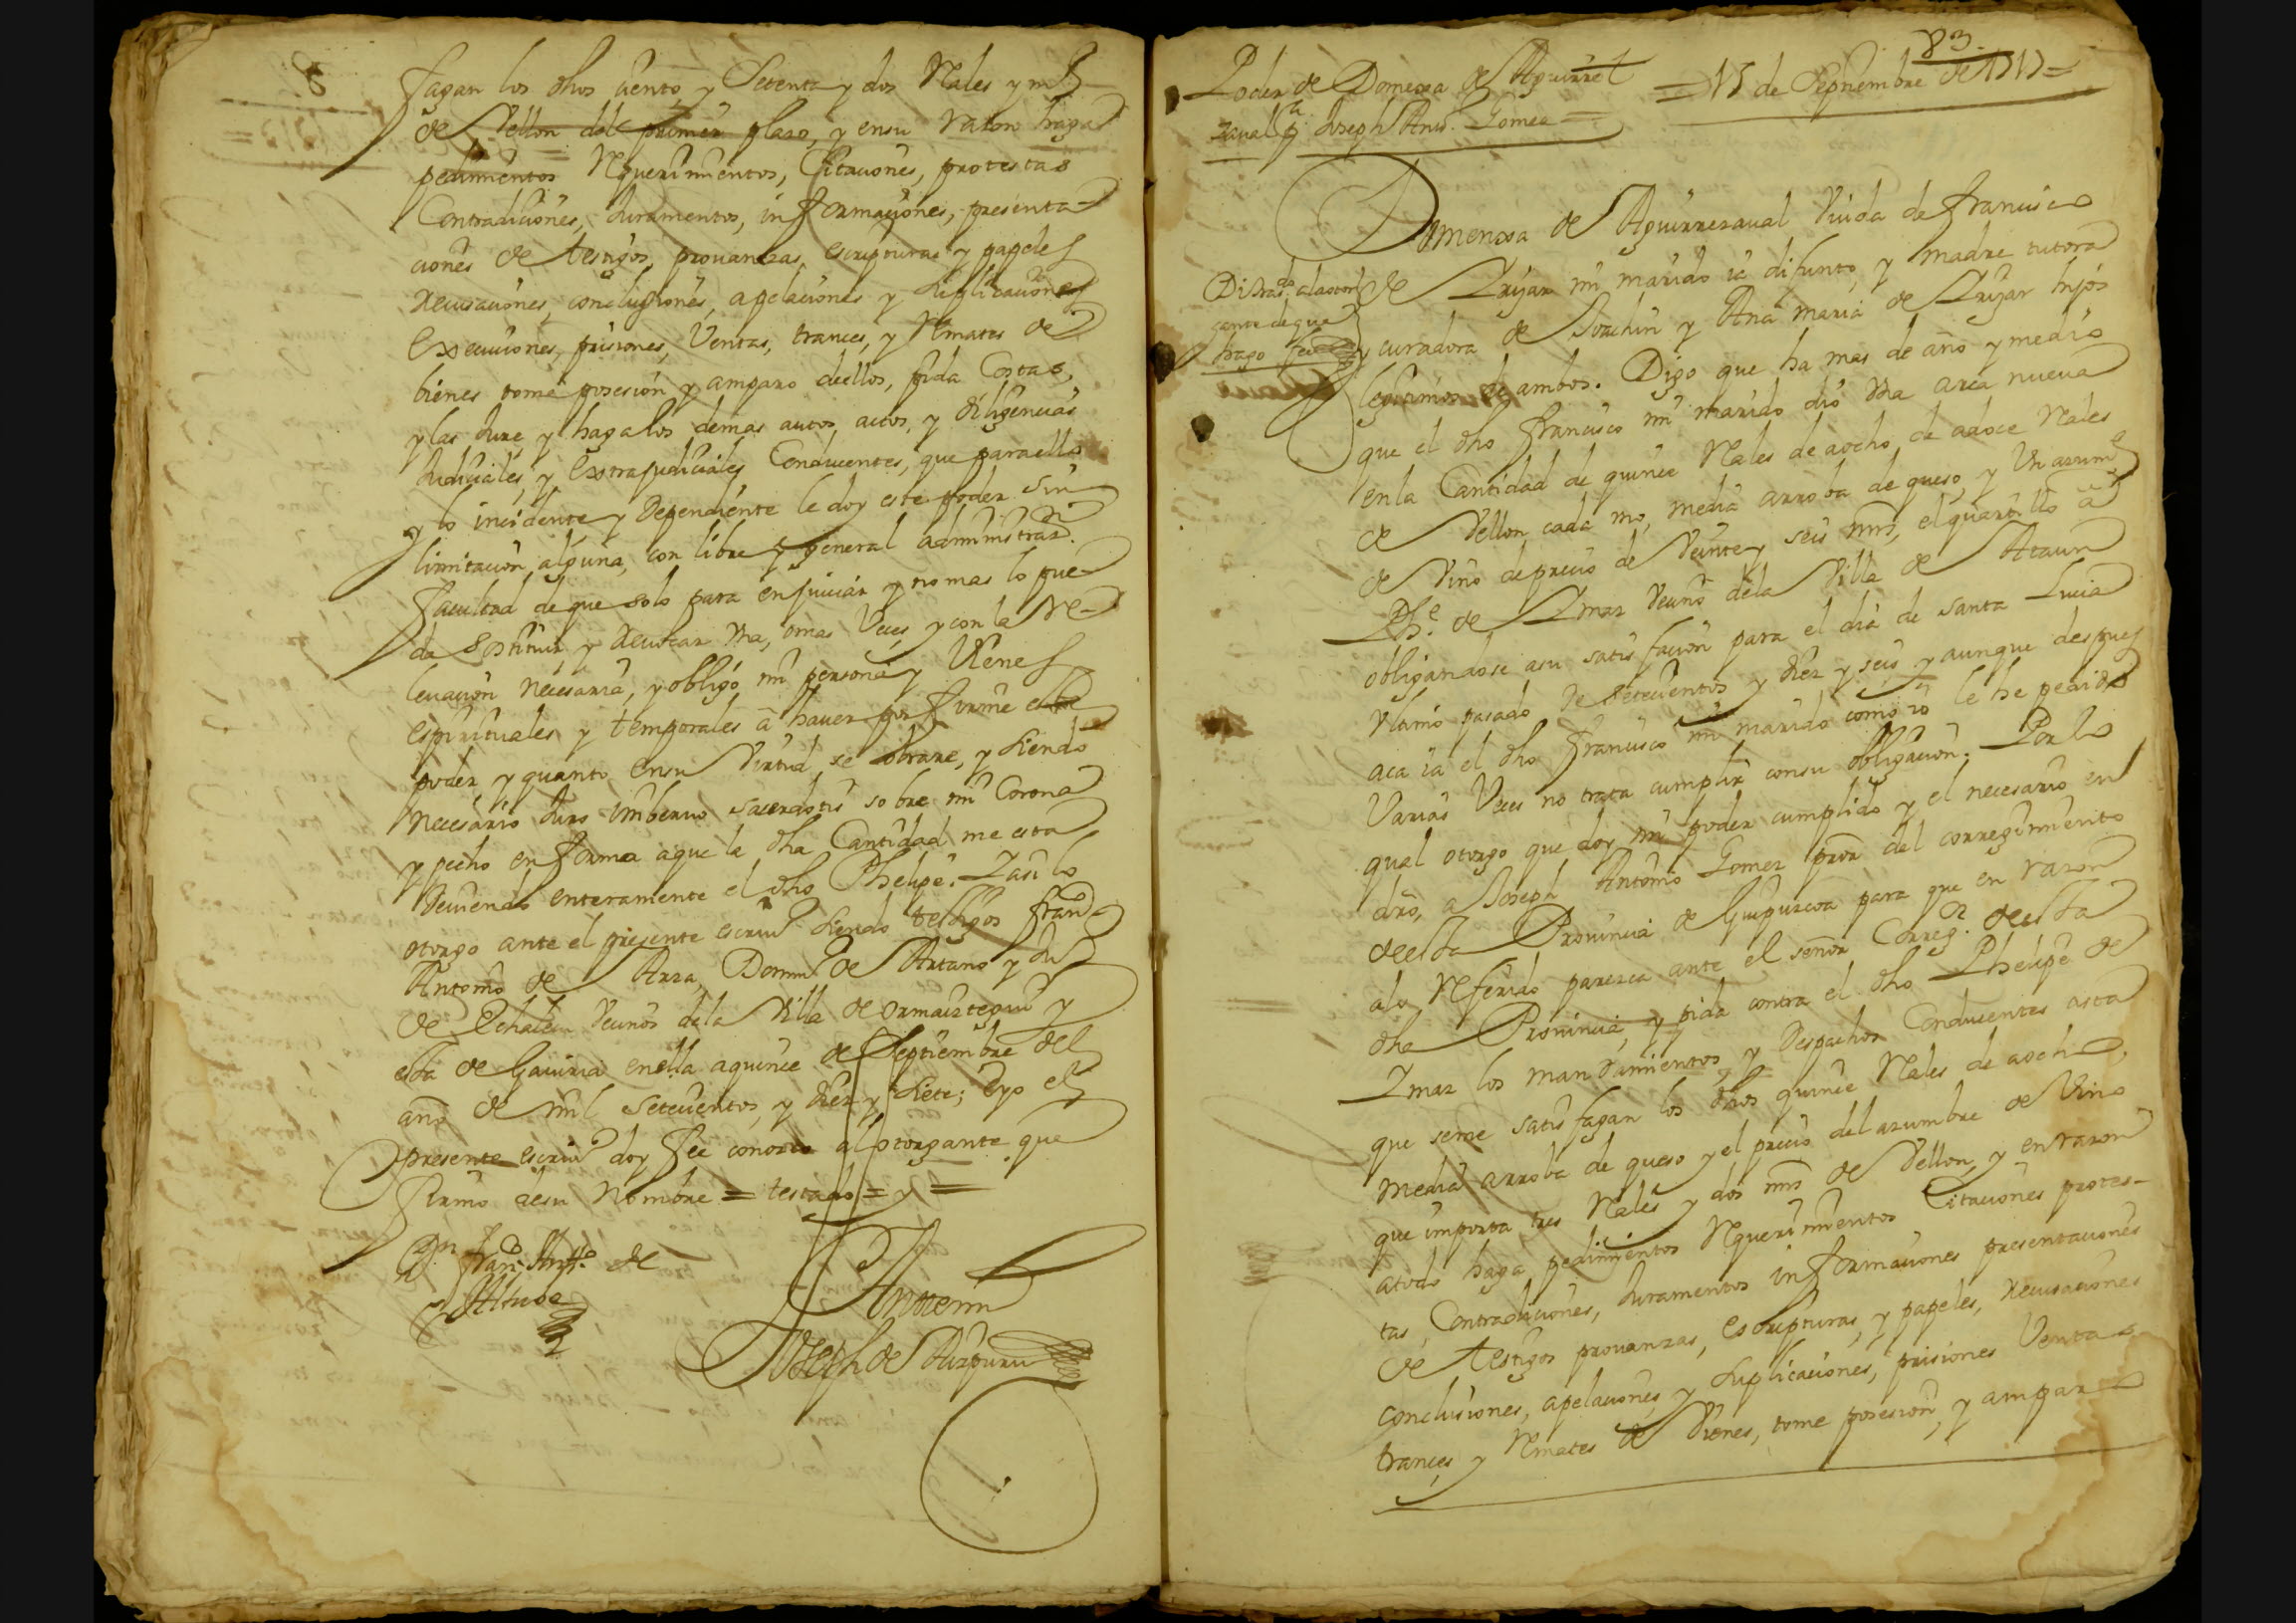 fagan los dhos ciento y Setenta y dos Rales y mº
de Vellon del primer plazo, y ensu razon haga
pedimientos Requerimientos, Citaciones, protestas
Contradiciones, Juramentos, informaçiones, presenta-
ciones de testigos, prouanzas, escripturas y papeles
recusaciones, conclusiones, apelaciones y suplicaciones
Execuciones, prisiones, Ventas, trances, y Remates de
bienes tome posesion y amparo deellos, pida Costas,
y las Jure y haga los demas autos, actos, y diligencias
Judiciales, y Extrajudiciales Conducentes, que para ello
y lo incidente y dependiente le doy este poder sin
limitacion alguna, con libre y general administraz.on
facultad de que solo para enjuiciar y no mas lo pue-
da sostituir, y reuocar Vna, omas Veces, y con la Re-
leuacion necesaria, y obligo mi persona y Vienes
espirituales y temporales â hauer por firme este
poder, y quanto ensu Virtud se obrare, y siendo
necesario Juro imberuo sacerdotis sobre mi Corona
y pecho en forma aque la dha Cantidad me esta
deuiendo enteramente el dho Phelipe. Y asi lo
otorgo ante el presente escriuº siendo testigos franº
Antonio de Arza, Domº de Artano y Ju
de Echaⁿ Vecinos dela Villa de ormaiztegui y
esta de Gauiria enella aquince de Septiembre del
año de mil setecientos, y diez y siete; E yo el
presente escriuº doy fee conozco al otorgante que
firmo desu nombre = testado = y =
Dn franco Antto de
Altube
Antemi
Joseph de Aizpuru
83
Poder de Domenxa de Aguirre
zaual pª Joseph Antº Gomez =
= 15 de Septiembre de 1717 =
Domenxa de Aguirrezaual Viuda de francisco
de Lizar mi marido ia difunto, y madre tutora
y curadora de Joachin y Ana maria de Lizar hijos
lexitimos de ambos. Digo que ha mas de año y medio
que el dho francisco mi marido dio Vna arca nueua
en la Cantidad de quince Rales de aocho, de adoce Rales
de Vellon cada vno, media arroba de queso, y Vn azumᵉ
de Vino de precio de Veinte y seis mrs, el quartillo â
Phe de Ymaz Vecino dela Villa de Ataun
obligandose asu satisfacion para el dia de santa Lucia
Vltimo pasado de setecientos y diez y seis y aunque despues
aca ia el dho francisco mi marido como io le he pedido
Varias Veces no trata cumplir consu obligacion. Por lo
qual otorgo que doy mi poder cumplido y el necesario en
dro, a Joseph Antonio Gomez pror del corregimiento
deesta Prouincia de Guipuzcoa para que en razon
alo Referido parezca ante el señor Correg.or deesta
dha Prouincia, y pida contra el dho Phelipe de
Ymaz los mandamientos, y despachos Conducentes asta
que seme satisfagan los dhos quince Rales de aocho,
media arroba de queso y el precio del azumbre de Vino
que importa tres Rales y dos mrs de Vellon, y en razon
atodo haga pedimientos Requerimientos Citaciones protes-
tas, Contradiciones, Juramentos informaciones presentaciones
de testigos prouanzas, escripturas, y papeles, recusaciones
conclusiones, apelaciones, y suplicaciones, prisiones Ventas
trances y Remates de Vienes, tome posesion, y amparo